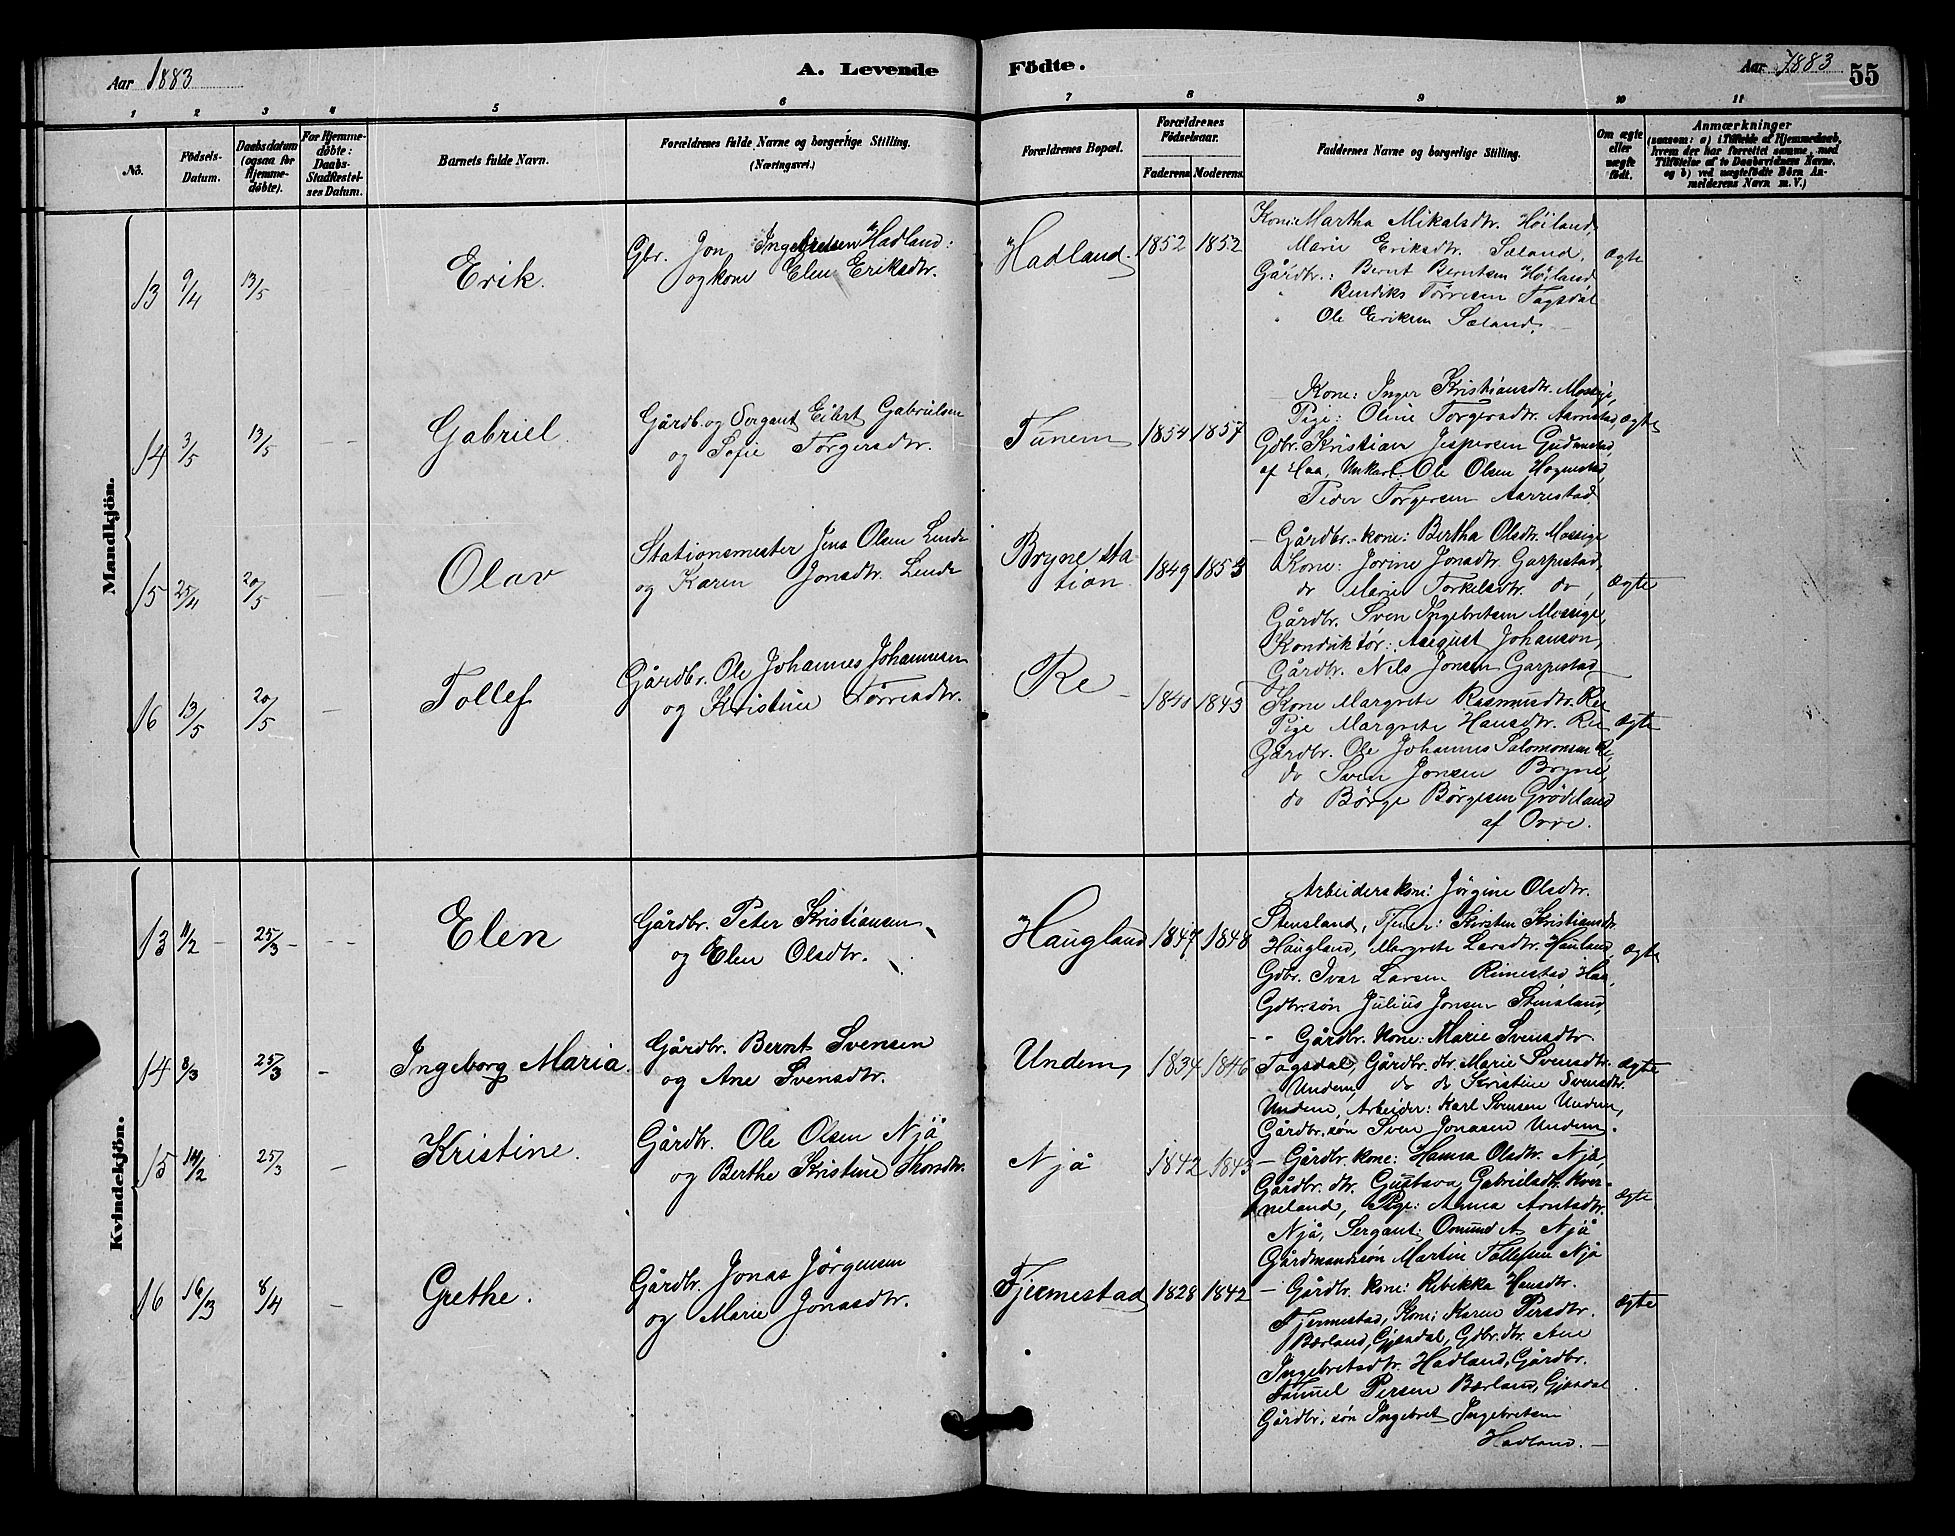 Aar 1883
A. Levende Födte.
Aar 1883
55
1 2 3 4 5 6 7 8 9 10 11
No.
Födsels-Datum.
Daabsdatum (ogsaa for Hjemmedöbte).
For Hjemmedöbte: Daabs-Stadfæstelses Datum.
Barnets fulde Navn.
Forældrenes fulde Navne og borgerlige Stilling. (Næringsvei.)
Forældrenes Bopæl.
Forældrenes Födselsaar.
Faderens Moderens
Faddernes Navne og borgerlige Stilling.
Om ægte eller uægte födt.
Anmærkninger
(saasom: a) i Tilfælde af Hjemmedaab, hvem der har forrettet samme, med Tilföielse af to Daabsvidners Navne, og b) ved uægtefödte Börn Anmelderens Navn m. V.)
Mandkjön.
13 9/4 13/5 Erik.
Gbr. Jon Ingebretsen Hadland:
og kone Elen Eriksdtr.
Hadland. 1852 1852
Kone: Martha Mikalsdtr. Höiland
Marie Eriksdtr. Sæland,
Gårdbr.: Bernt Berntsen Höiland,
Bendiks Törresen Tagsdal
Ole Eriksen Sæland.
Ægte
14 3/5 13/5 Gabriel.
Gårdb. og Sergant Eilert Gabrielsen
og Sofie Torgersdtr.
Tunem 1854 1857
Kone: Inger Kristiansdtr. Mossige,
Pige: Oline Torgersdtr. Aarrestad,
Gdbr. Kristian Jespersen Gudmestad,
af Haa, Unkarl: Ole Olsen Hognestad,
Peder Torgersen Aarrestad
Ægte
15 25/4 20/5 Olav
Stationsmester Jens Olsen Lende
og Karen Jonsdtr. Lende
Bryne station 1849 1853
Gårdbr.-kone: Bertha Olsdtr. Mossige
Kone: Jorine Jonsdtr. Garpestad,
do Marie Torkelsdtr. do,
Gårdbr. Sven Ingebretsen Mossige,
Konduktör: August Johanson,
Gårdbr. Nels Jonsen Garpestad
Ægte
16 13/5 20/5 Tollef
Gårdbr. Ole Johannes Johannesen
og Kristine Törresdtr.
Re 1840 1843
Kone Margrete Rasmusdtr. Re
Pige Margrete Hansdtr. Re
Gårdbr. Ole Johannes Salomonsen Re,
do Sven Jonsen Bryne,
do Börge Börgesen Grödeland
af Orre.
Ægte
Kvindekjön.
13 11/2 25/3 Elen
Gårdbr. Peter Kristiansen
og Elen Olsdtr.
Haugland 1847 1848
Arbeiderskone: Jörgine Olsdtr.
Stensland, Kirsten Kristiansdtr
Haugland, Margrete Larsdtr. Hauland,
Gdbr. Ivar Larsen Rimestad Haa,
Gdbr.sön Julius Jonsen Stensland,
Ægte
14 8/3 25/3 Ingeborg Maria.
Gårdbr. Bernt Svensen
og Ane Svensdtr.
Undem, 1834 1846
Gårdbr. Kone: Marie Svensdtr
Tagsdal, Gårdbr. dtr. Marie Svensdtr.
Undem, do do Kristine Svensdtr.
Undem, Arbeider: Karl Svensen Undem,
Gårdbr.sön Sven Jonasen Undem.
Ægte
15 14/2 25/3 Kristine.
Gårdbr. Ole Olsen Njå
og Berthe Kristine Thorsdtr.
Njå 1842 1843
Gårdbr. kone: Hanna Olsdtr. Njå,
Gårdbr. dtr. Gustava Gabrielsdtr. Kver-
neland, Pige: Anna Arntsdtr.
Njå, Sergant: Osmund A. Njå
Gårdmandssön Martin Tollefsen Njå
Ægte
16 16/3 8/4 Grethe.
Gårdbr. Jonas Jörgensen
og Marie Jonasdtr.
Fjermestad 1828 1842
Gårdbr. kone: Rebekka Hansdtr.
Fjermestad, Kone: Karen Persdtr.
Bærland, Gjesdal, Gdbr. dtr. Ane
Ingebretsdtr. Hadland, Gårdbr.
Samuel Persen Bærland, Gjesdal
Gårdbr. sön Ingebret Ingebretsen
Hadland.
Ægte